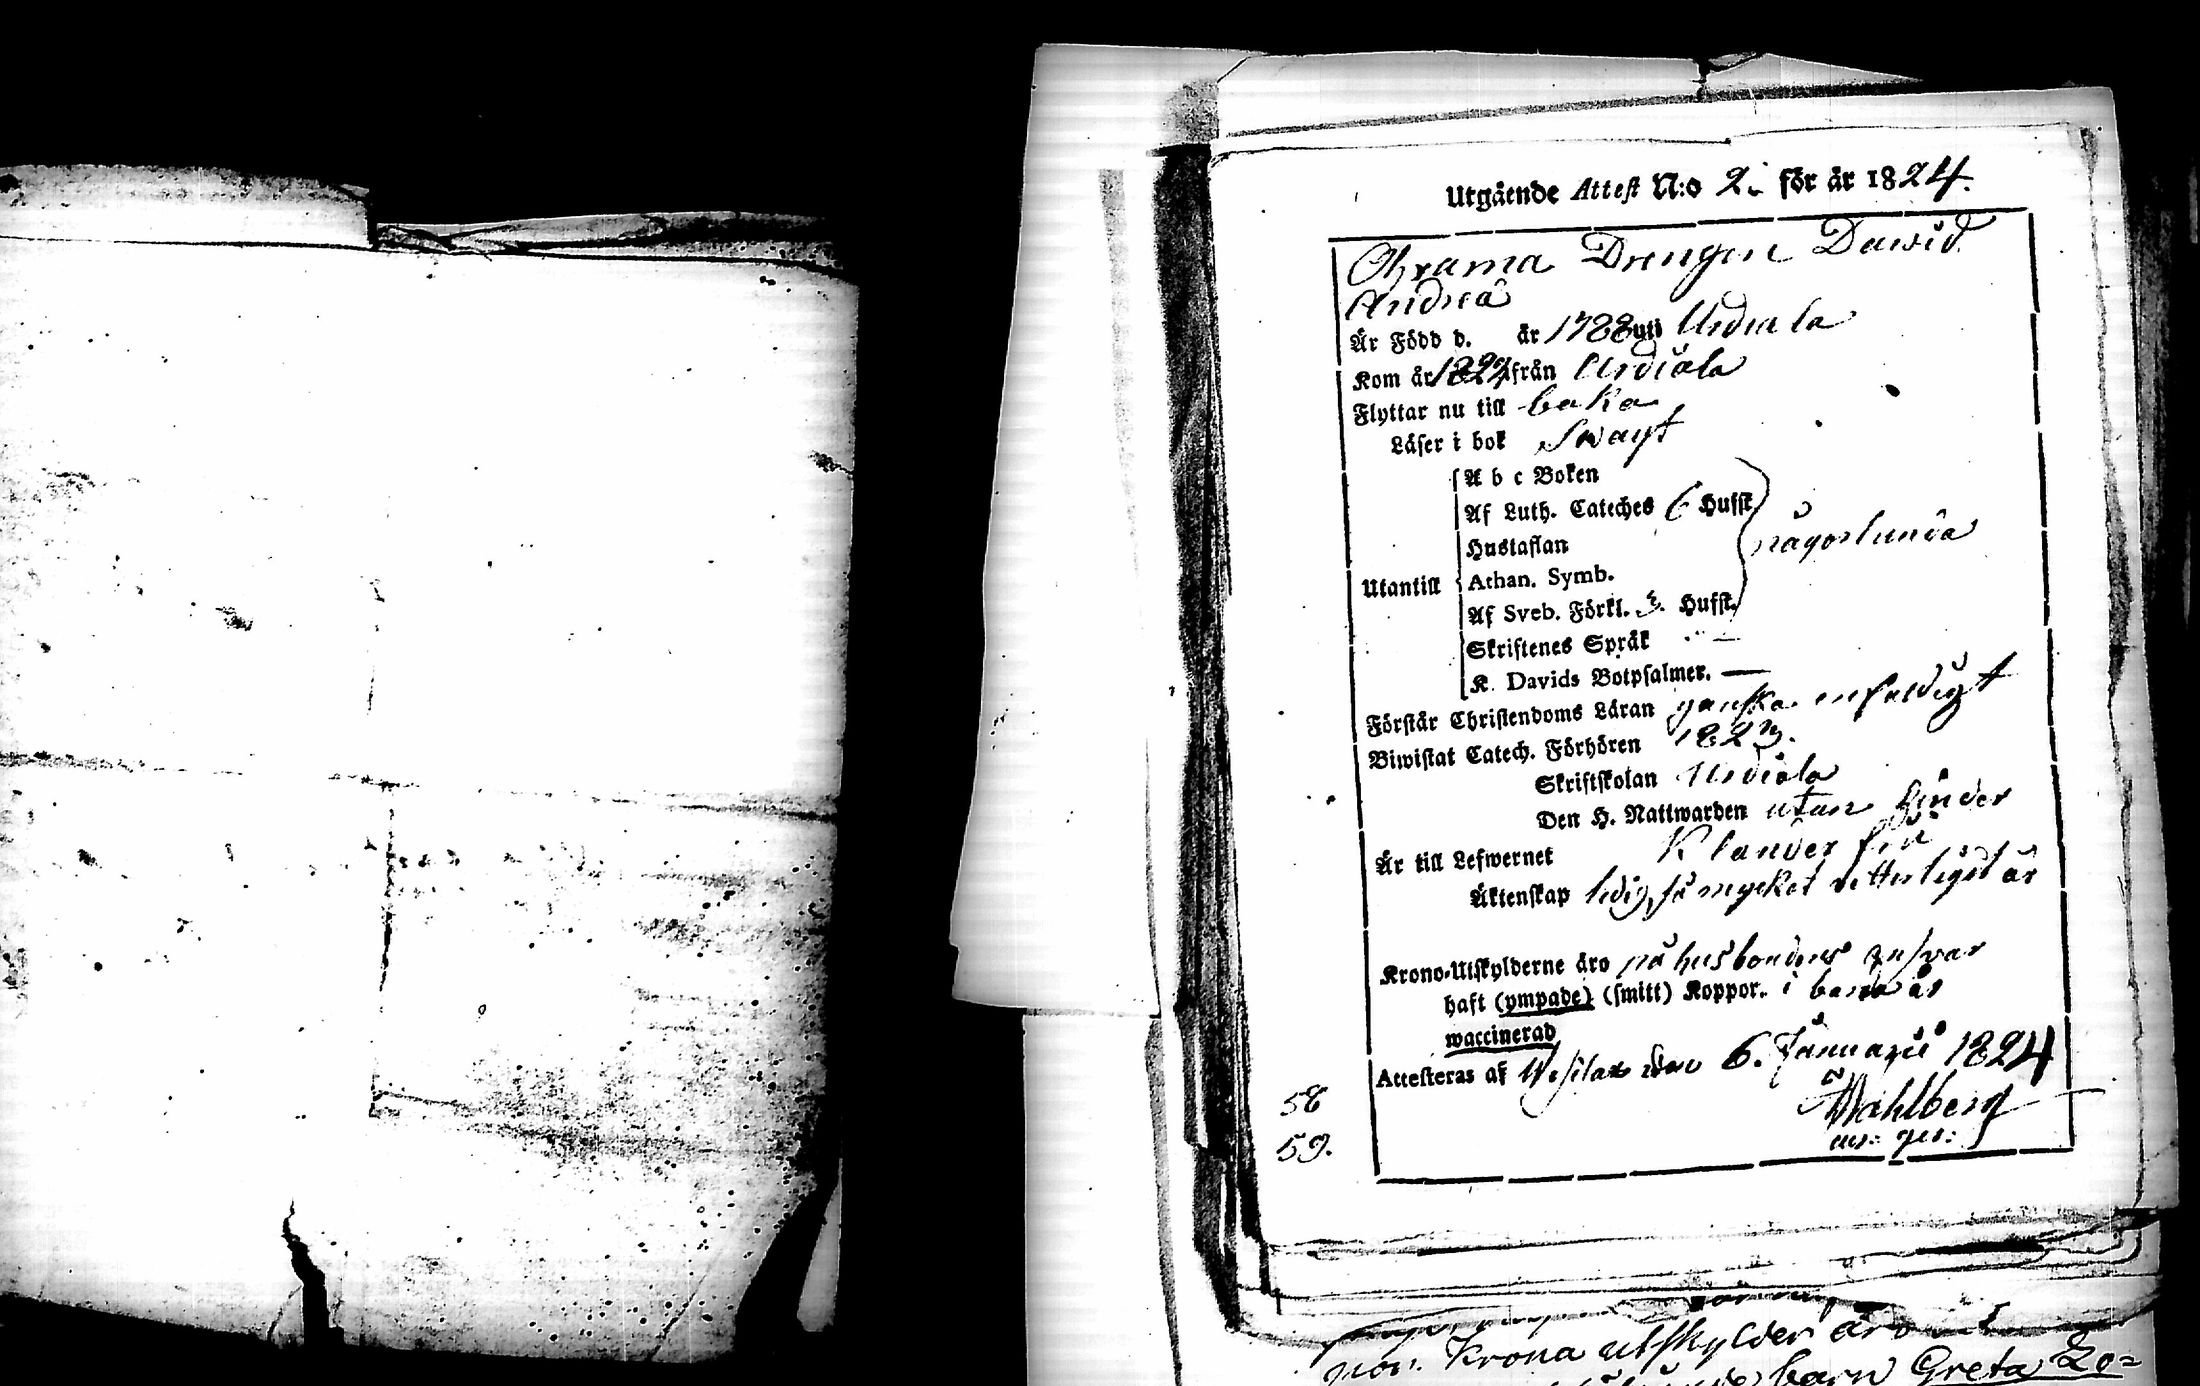 Utgående Attest N:o 2. för år 1824.
Ohrama Drengen David
Andreä
Är Född d. är 1788 uti Urdiala
Kom år 1822 från Urdiala
Flyttar nu till baka
Läser i bok Swagt
A b c Boken
Af Luth. Cateches 6 Hufst
Hustaflan
någorlunda
Utantill
Athan. Symb.
Af Sveb. Förkl. 3. Hufst.
Skriftenes Språk
K. Davids Botpsalmer. —
Förstår Christendoms Läran ganska enfaldigt
Biwistat Catech. Förhören 1823.
Skriftskolan Urdiala
Den H. Nattwarden utan hinder
Är till Lefwernet Klander fri
Äktenskap ledig, så mycket vitterligit är
Krono-Utskylderne äro på husbondens ansvar
haft (ympade) (smitt) Koppor. i barna år
waccinerad
Attesteras af Wesilax den 6. Januarii 1824
Wahlberg
58
59.
Krona utskylder äro
barn Greta Lo=